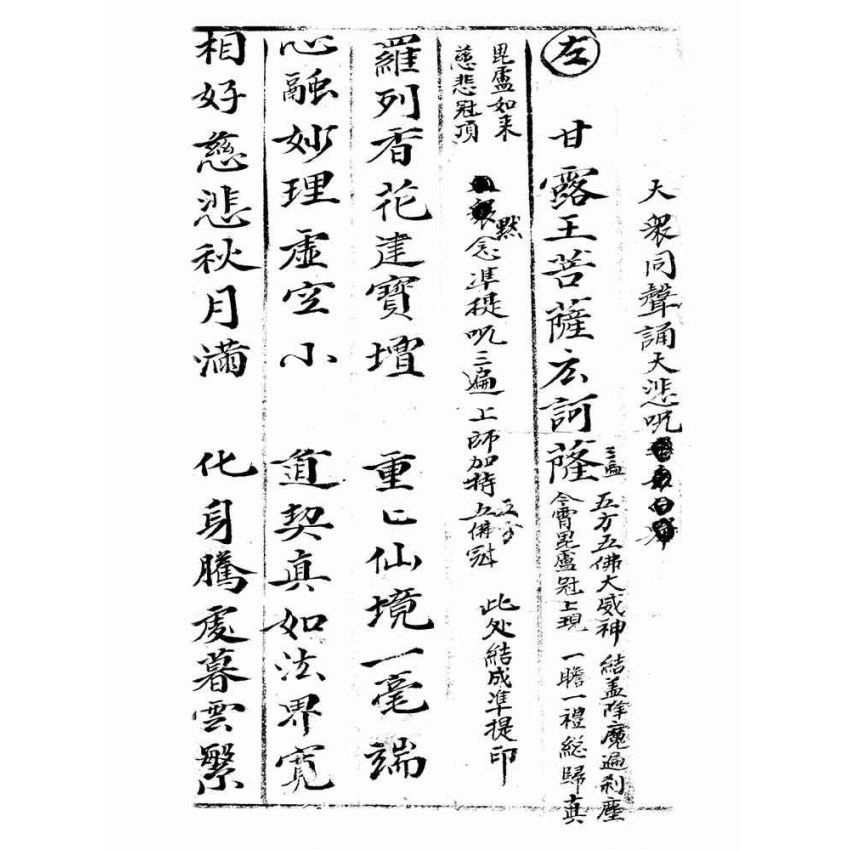 大衆同聲誦大悲呪
左
甘露王菩薩摩訶薩 三遍
五方五佛大威神 結盖降魔遍刹塵
今宵毘盧冠上現 一瞻一禮總歸真
毘盧如来
慈悲冠頂
默念準提呪三遍上師加持五佛冠
此处結成準提印
羅列香花建寶壇 重〻仙境一毫端
心融妙理虚空小 道契真如法界寬
相好慈悲秋月滿 化身騰處暮雲繁